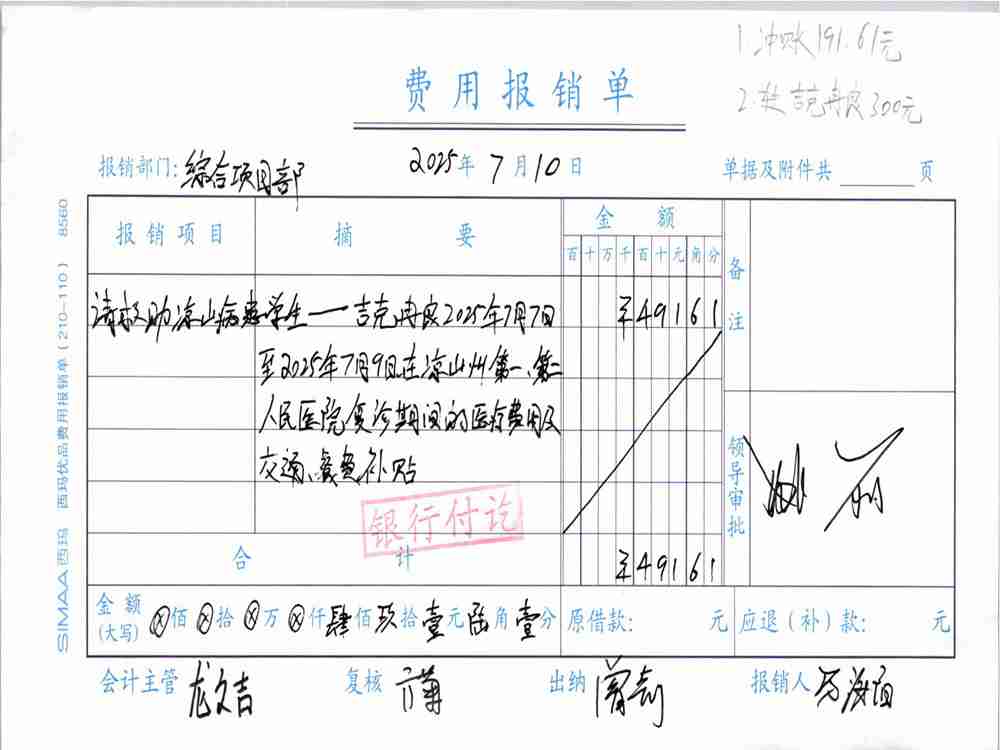 1.冲账191.61元
2.转吉克冉皮300元
费用报销单
报销部门:综合项目部 2025年7月10日 单据及附件共 页
报销项目 摘要 金额 备注
百十万千百十元角分
请救助凉山病患学生——吉克冉皮2025年7月7日 ¥49161
至2025年7月9日在凉山州第一、第二
人民医院复诊期间的医疗费用及
交通、餐费补贴
银行付讫
领导审批
合计 ¥49161
金额(大写) ⊗佰⊗拾⊗万⊗仟肆佰玖拾壹元陆角壹分 原借款: 元 应退(补)款: 元
会计主管 龙文吉 复核 出纳 报销人 马海
SIMAA西玛 西玛优品费用报销单(210—110) 8560